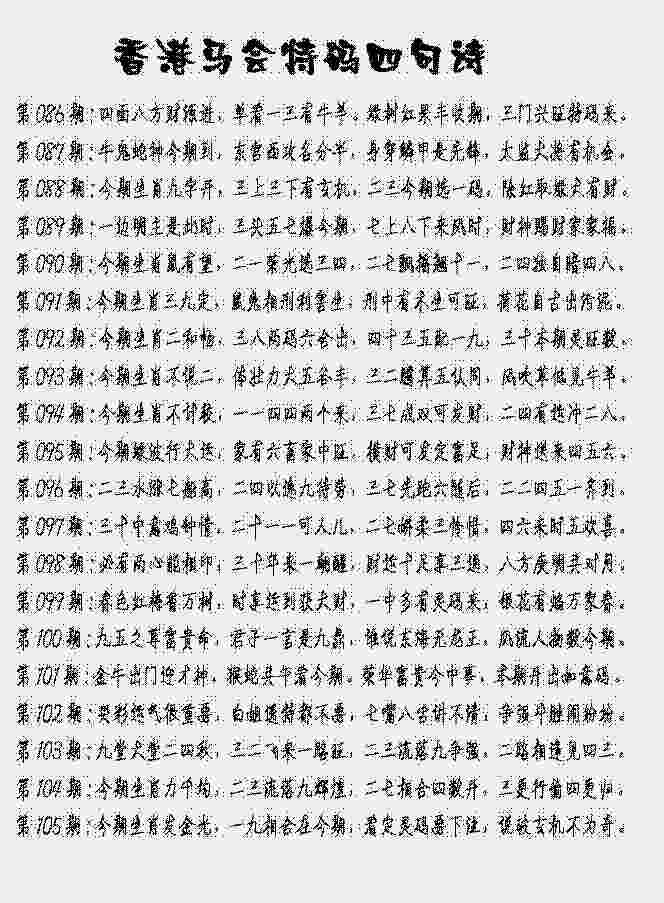 香港马会特码四句诗
第086期:四面八方财源进,单看一三有牛羊。绿树红果丰收期,三门兴旺特码来。
第087期:牛鬼蛇神今期到,东宫西攻各分半,身穿鳞甲是先锋,太监大将有机会。
第088期:今期生肖九字开,三上三下有玄机,二三今期选一码,除红取绿大有财。
第089期:一边明主是此时,三头五七爆今期,七上八下来风时,财神赐财家家福。
第090期:今期生肖鼠有望,二一荣光送三四,二七飘扬翘十一,二四独自暗四八。
第091期:今期生肖三九定,鼠兔相刑利害生,刑中有禾生可证,荷花自古出污泥。
第092期:今期生肖二和恰,三八两码六合出,四十三五配一九,三十本期灵旺数。
第093期:今期生肖不说二,体壮力大五谷丰,三二腾算五认同,风吹草低见牛羊。
第094期:今期生肖不讨获,一一四四两个来,三七点双可发财,二四有选冲二八。
第095期:今期绿波行大运,家有六畜家中旺,横财可发定富足,财神送来四五六。
第096期:二三水涨七船高,二四以逸九待劳,三七先跑六随后,二二四五一齐到。
第097期:三十中意鸡钟情,二十一一可人儿,二七娇柔三传情,四六来时五欢喜。
第098期:必有两心能相印,三十年来一朝醒,财运十足享三通,八方庆明共对月。
第099期:春色红梅看万树,时来运到获大财,一中多有灵码来,银花有焰万家春。
第100期:九五之尊富贵命,君子一言是九鼎,谁说东海无龙王,风流人物数今期。
第101期:金牛出门迎才神,猴蛇共午看今期。荣华富贵今中事,本期开出如意码。
第102期:买彩运气很重要,白姐送特都不要,七嘴八舌讲不清,争强斗胜闹纷纷。
第103期:九堂天堂二四秋,三二飞来一路旺,二三流落九争强,二路相逢见四三。
第104期:今期生肖力千均,二三流落九辉煌,二七相合四数开,三更行偷四更归。
第105期:今期生肖发金光,一九相合在今期,看定灵码要下注,说破玄机不为奇。